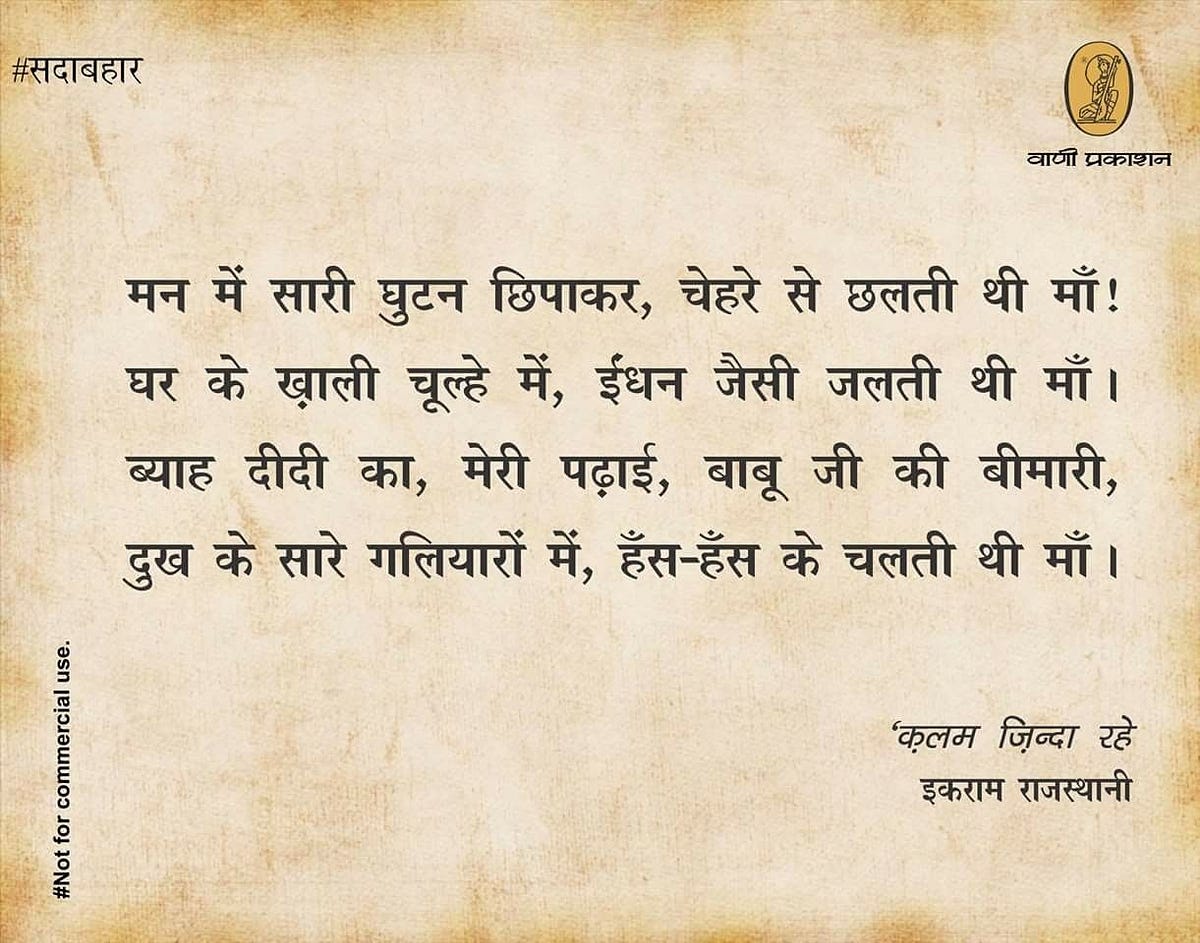 #सदाबहार
वाणी प्रकाशन
मन में सारी घुटन छिपाकर, चेहरे से छलती थी माँ!
घर के ख़ाली चूल्हे में, ईंधन जैसी जलती थी माँ।
ब्याह दीदी का, मेरी पढ़ाई, बाबू जी की बीमारी,
दुख के सारे गलियारों में, हँस-हँस के चलती थी माँ।
‘क़लम ज़िन्दा रहे
इकराम राजस्थानी
#Not for commercial use.